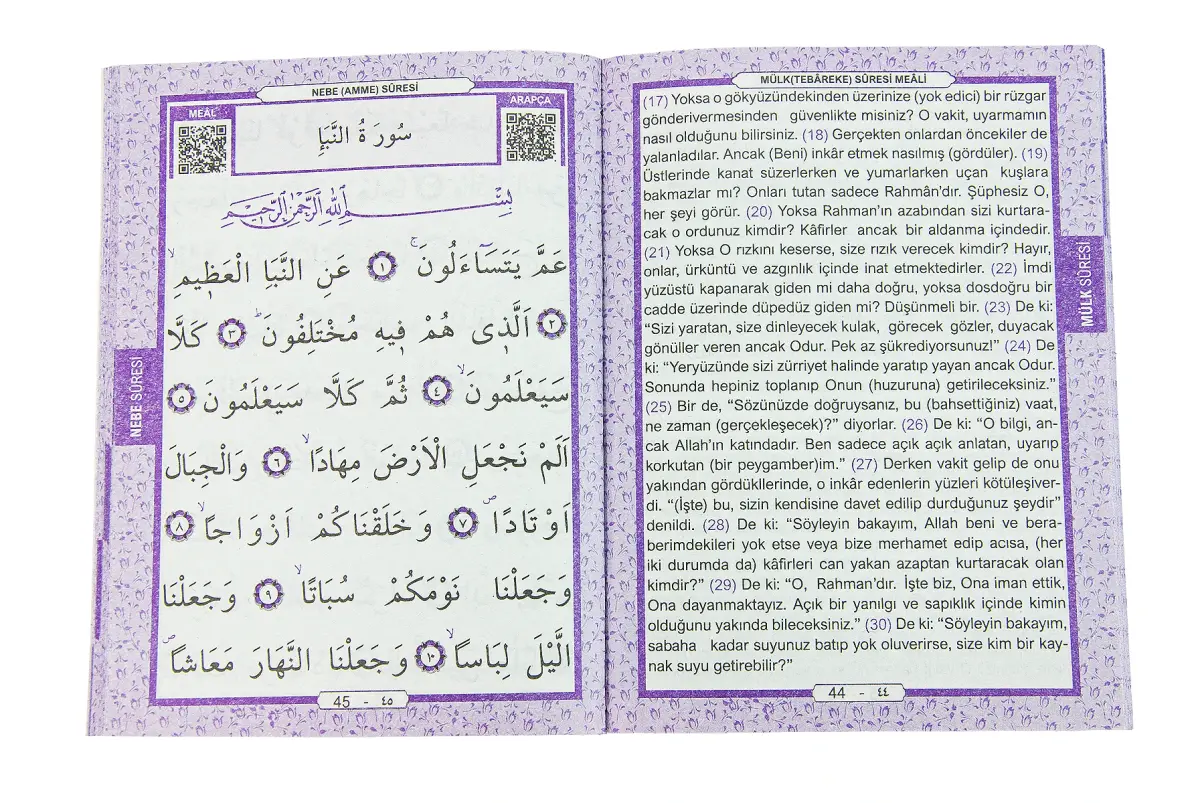 MÜLK(TEBÂREKE) SÛRESİ MEÂLİ
(17) Yoksa o gökyüzündekinden üzerinize (yok edici) bir rüzgar
gönderivermesinden güvenlikte misiniz? O vakit, uyarmamın
nasıl olduğunu bilirsiniz. (18) Gerçekten onlardan öncekiler de
yalanladılar. Ancak (Beni) inkâr etmek nasılmış (gördüler). (19)
Üstlerinde kanat süzerlerken ve yumarlarken uçan kuşlara
bakmazlar mı? Onları tutan sadece Rahmân’dır. Şüphesiz O,
her şeyi görür. (20) Yoksa Rahman’ın azabından sizi kurtara-
cak o ordunuz kimdir? Kâfirler ancak bir aldanma içindedir.
(21) Yoksa O rızkını keserse, size rızık verecek kimdir? Hayır,
onlar, ürküntü ve azgınlık içinde inat etmektedirler. (22) İmdi
yüzüstü kapanarak giden mi daha doğru, yoksa dosdoğru bir
cadde üzerinde düpedüz giden mi? Düşünmeli bir. (23) De ki:
“Sizi yaratan, size dinleyecek kulak, görecek gözler, duyacak
gönüller veren ancak Odur. Pek az şükrediyorsunuz!” (24) De
ki: “Yeryüzünde sizi zürriyet halinde yaratıp yayan ancak Odur.
Sonunda hepiniz toplanıp Onun (huzuruna) getirileceksiniz.”
(25) Bir de, “Sözünüzde doğruysanız, bu (bahsettiğiniz) vaat,
ne zaman (gerçekleşecek)?” diyorlar. (26) De ki: “O bilgi, an-
cak Allah’ın katındadır. Ben sadece açık açık anlatan, uyarıp
korkutan (bir peygamber)im.” (27) Derken vakit gelip de onu
yakından gördükllerinde, o inkâr edenlerin yüzleri kötüleşiver-
di. “(İşte) bu, sizin kendisine davet edilip durduğunuz şeydir”
denildi. (28) De ki: “Söyleyin bakayım, Allah beni ve bera-
berimdekileri yok etse veya bize merhamet edip acısa, (her
iki durumda da) kâfirleri can yakan azaptan kurtaracak olan
kimdir?” (29) De ki: “O, Rahman’dır. İşte biz, Ona iman ettik,
Ona dayanmaktayız. Açık bir yanılgı ve sapıklık içinde kimin
olduğunu yakında bileceksiniz.” (30) De ki: “Söyleyin bakayım,
sabaha kadar suyunuz batıp yok oluverirse, size kim bir kay-
nak suyu getirebilir?”
44 - ٤٤
MÜLK SÛRESİ
NEBE (AMME) SÛRESİ
MEAL
ARAPÇA
سُورَةُ النَّبَأِ
بِسْمِ اللهِ الرَّحْمٰنِ الرَّحِيمِ
عَمَّ يَتَسَٓاءَلُونَۚ ﴿١﴾ عَنِ النَّبَأِ الْعَظ۪يمِۙ
﴿٢﴾ اَلَّذ۪ي هُمْ ف۪يهِ مُخْتَلِفُونَۜ ﴿٣﴾ كَلَّا
سَيَعْلَمُونَۙ ﴿٤﴾ ثُمَّ كَلَّا سَيَعْلَمُونَ ﴿٥﴾
اَلَمْ نَجْعَلِ الْاَرْضَ مِهَادًاۙ ﴿٦﴾ وَالْجِبَالَ
اَوْتَادًاۖ ﴿٧﴾ وَخَلَقْنَاكُمْ اَزْوَاجًاۙ ﴿٨﴾
وَجَعَلْنَا نَوْمَكُمْ سُبَاتًاۙ ﴿٩﴾ وَجَعَلْنَا
الَّيْلَ لِبَاسًاۙ ﴿١٠﴾ وَجَعَلْنَا النَّهَارَ مَعَاشًاۖ
45 - ٤٥
NEBE SÛRESİ